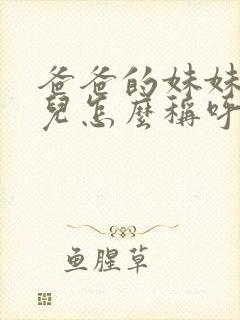 爸爸的妹妹
兒怎麼稱呼
鱼腥草